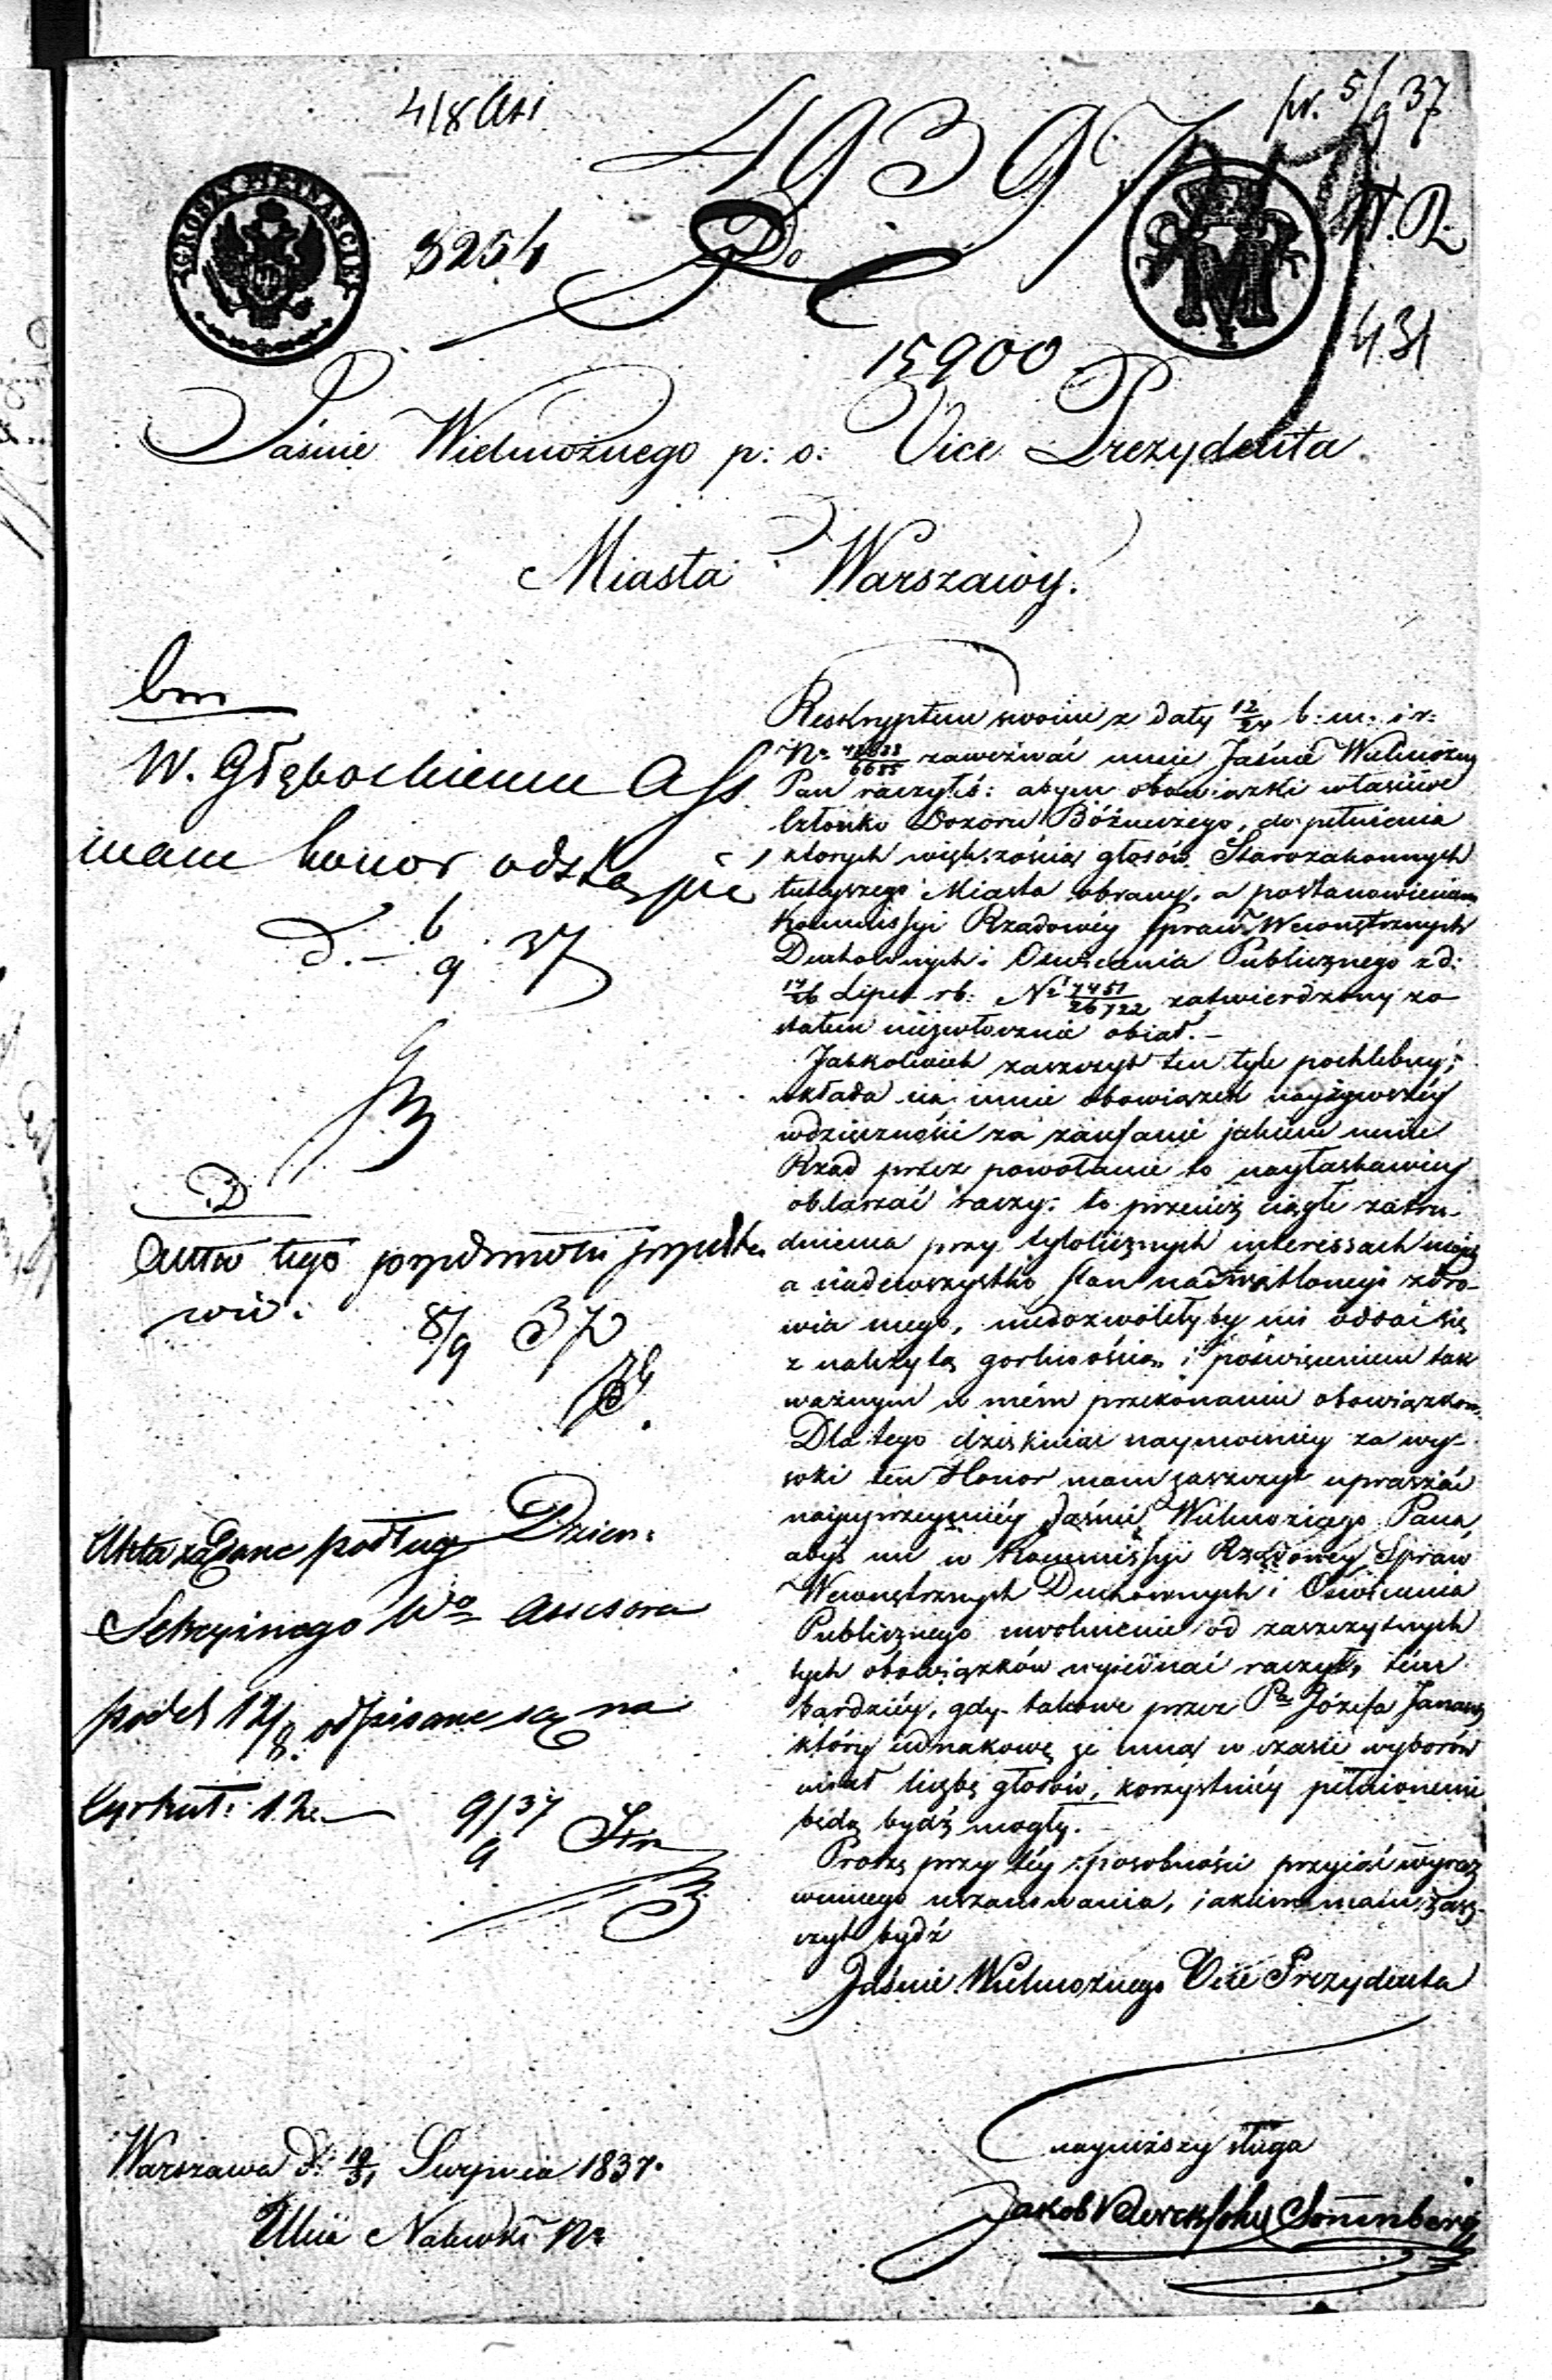 4/8 Akt
49397
pr. 5/9 37
GROSZY PIETNAŚCIE
5254
Do
W. R.
15900
431
Jaśnie Wielmożnego p: o: Vice Prezydenta
Miasta Warszawy.
bm
W. Głębockiemu Ass.
mam honor odstąpić
d. 6/9 37
D
Akta tego przedmiotu
8/9 37
Akta żądane podług Dzien:
Sekcyinego Wo Assesora
pod 12/8 odpisane są na
Cyrkuł: 12
9/9 37
Reskryptem swoim z daty 12/24 b: m. i r:
No zawezwać mnie Jaśnie Wielmożny
Pan raczyłeś: abym obowiązki właściwe
Członka Dozoru Bóżniczego, do pełnienia
ktorych większością głosów Starozakonnych
tuteyszego Miasta obrany, a postanowieniem
Kommissyi Rządowéy Spraw Wewnętrznych
Duchownych i Oświecenia Publicznego z d:
14/26 Lipca rb: No 7451/26722 zatwierdzony zo
stałem niezwłocznie obiął. –
Jakkolwiek zaszczyt ten tyle pochlebny,
wkłada na mnie obowiązek nayżywszéy
wdzięczności za zaufanie jakiem mnie
Rząd przez powołanie to nayłaskawiey
obdarzać raczy: to przecież ciągłe zatru-
dnienia przy tylolicznych interessach moich
a nadewszystko stan nadwątlonego zdro-
wia mego, niedozwoliłyby mi oddać się
z należytą gorliwością i poświęceniem tak
ważnym w mém przekonaniu obowiązkom.
Dla tego dziękuiąc naymocniey za wy-
soki ten Honor mam zaszczyt upraszać
nayuprzeymiéy Jaśnie Wielmożnego Pana,
abyś mi w Kommissyi Rządowey Spraw
Wewnętrznych Duchownych i Oświecenia
Publicznego uwolnienie od zaszczytnych
tych obowiązków wyiednać raczył, tém
bardziéy, gdy takowe przez Pa Józefa Janasz
który iednakową ze mną w czasie wyborów
miał liczbę głosów, korzystniéy pełnionemi
będą bydź mogły.
Proszę przy téy sposobności przyiąć wyraz
winnego uszanowania, iakiem mam zasz-
czyt bydź
Jaśnie Wielmożnego Vice Prezydenta
nayniższy sługa
Jakob Sonnenberg
Warszawa d: 19/31 Sierpnia 1837.
Ulica Nalewki No